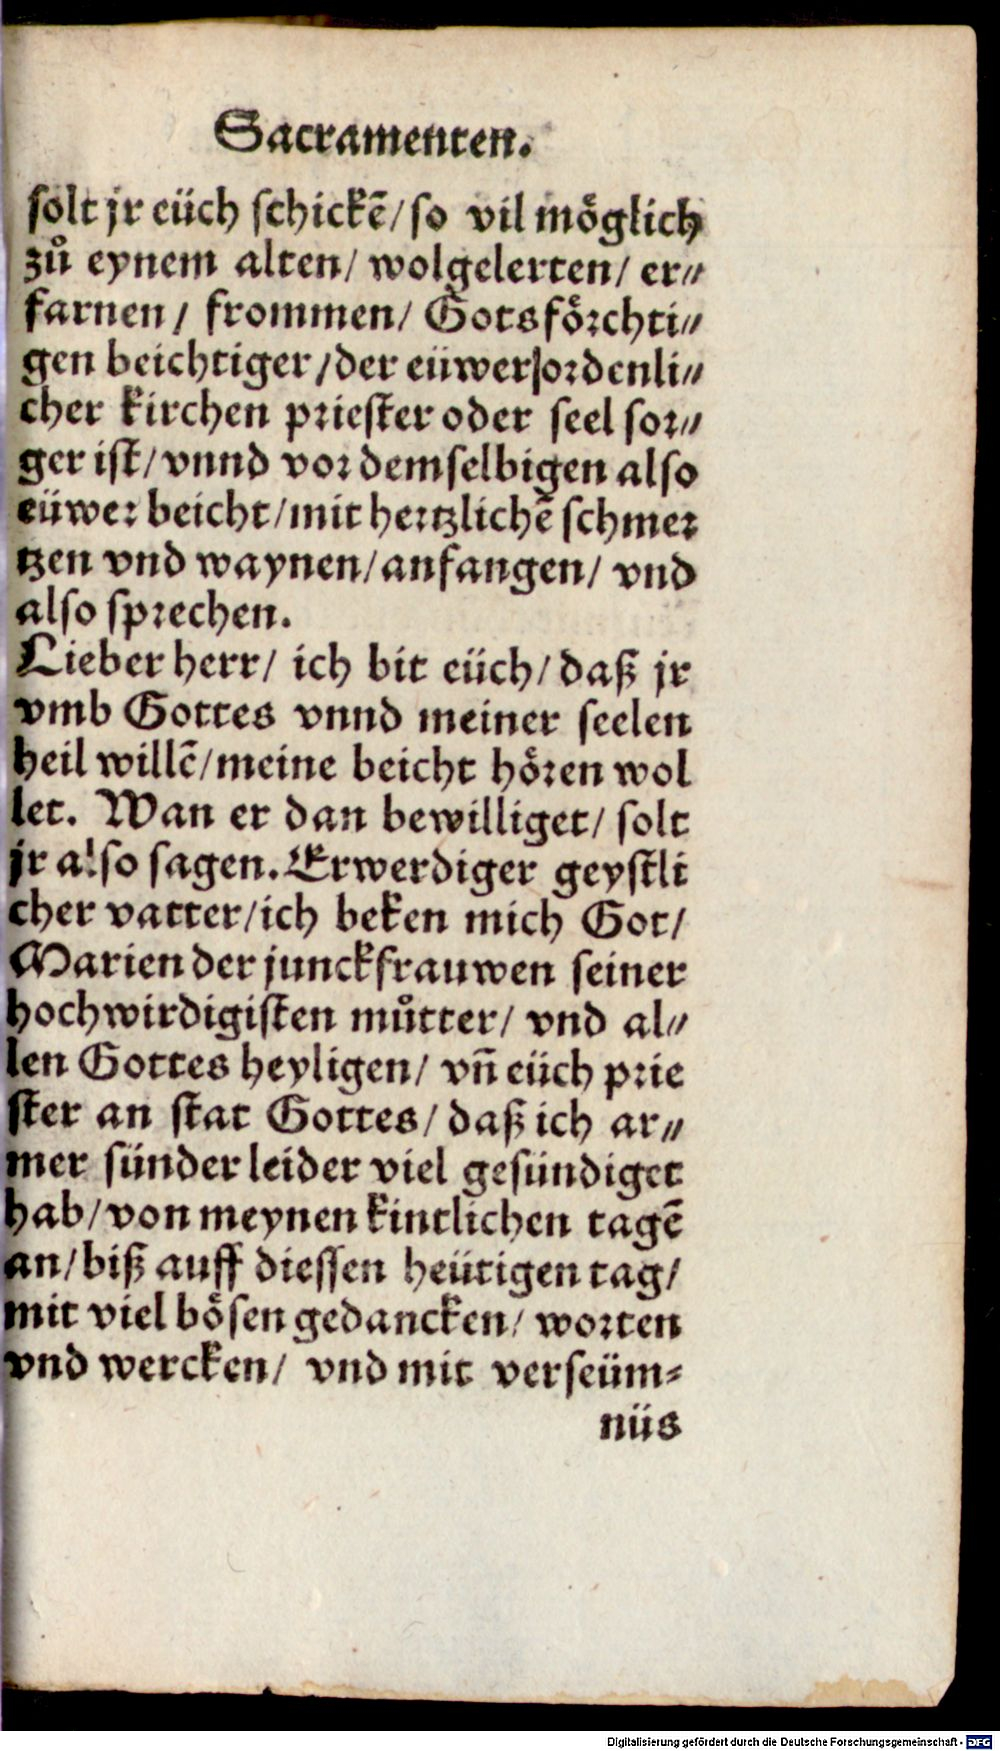 Sacramenten.
solt jr eüch schickē/so vil möglich
zů eynem alten/ wolgelerten/ er⸗
farnen/ frommen/ Gotsförchti⸗
gen beichtiger/der eüwer ordenli⸗
cher kirchen priester oder seel sor⸗
ger ist/vnnd vor demselbigen also
eüwer beicht/mit hertzlichē schmer
tzen vnd waynen/anfangen/ vnd
also sprechen.
Lieber herr/ ich bit eüch/daß jr
vmb Gottes vnnd meiner seelen
heil willē/meine beicht hören wol
let. Wan er dan bewilliget/ solt
jr also sagen. Erwerdiger geystli
cher vatter/ich beken mich Got/
Marien der junckfrauwen seiner
hochwirdigisten můtter/ vnd al⸗
len Gottes heyligen/ vñ eüch prie
ster an stat Gottes/daß ich ar⸗
mer sünder leider viel gesündiget
hab/von meynen kintlichen tagē
an/biß auff diessen heütigen tag/
mit viel bösen gedancken/ worten
vnd wercken/ vnd mit verseüm⸗
nüs
Digitalisierung gefördert durch die Deutsche Forschungsgemeinschaft - DFG